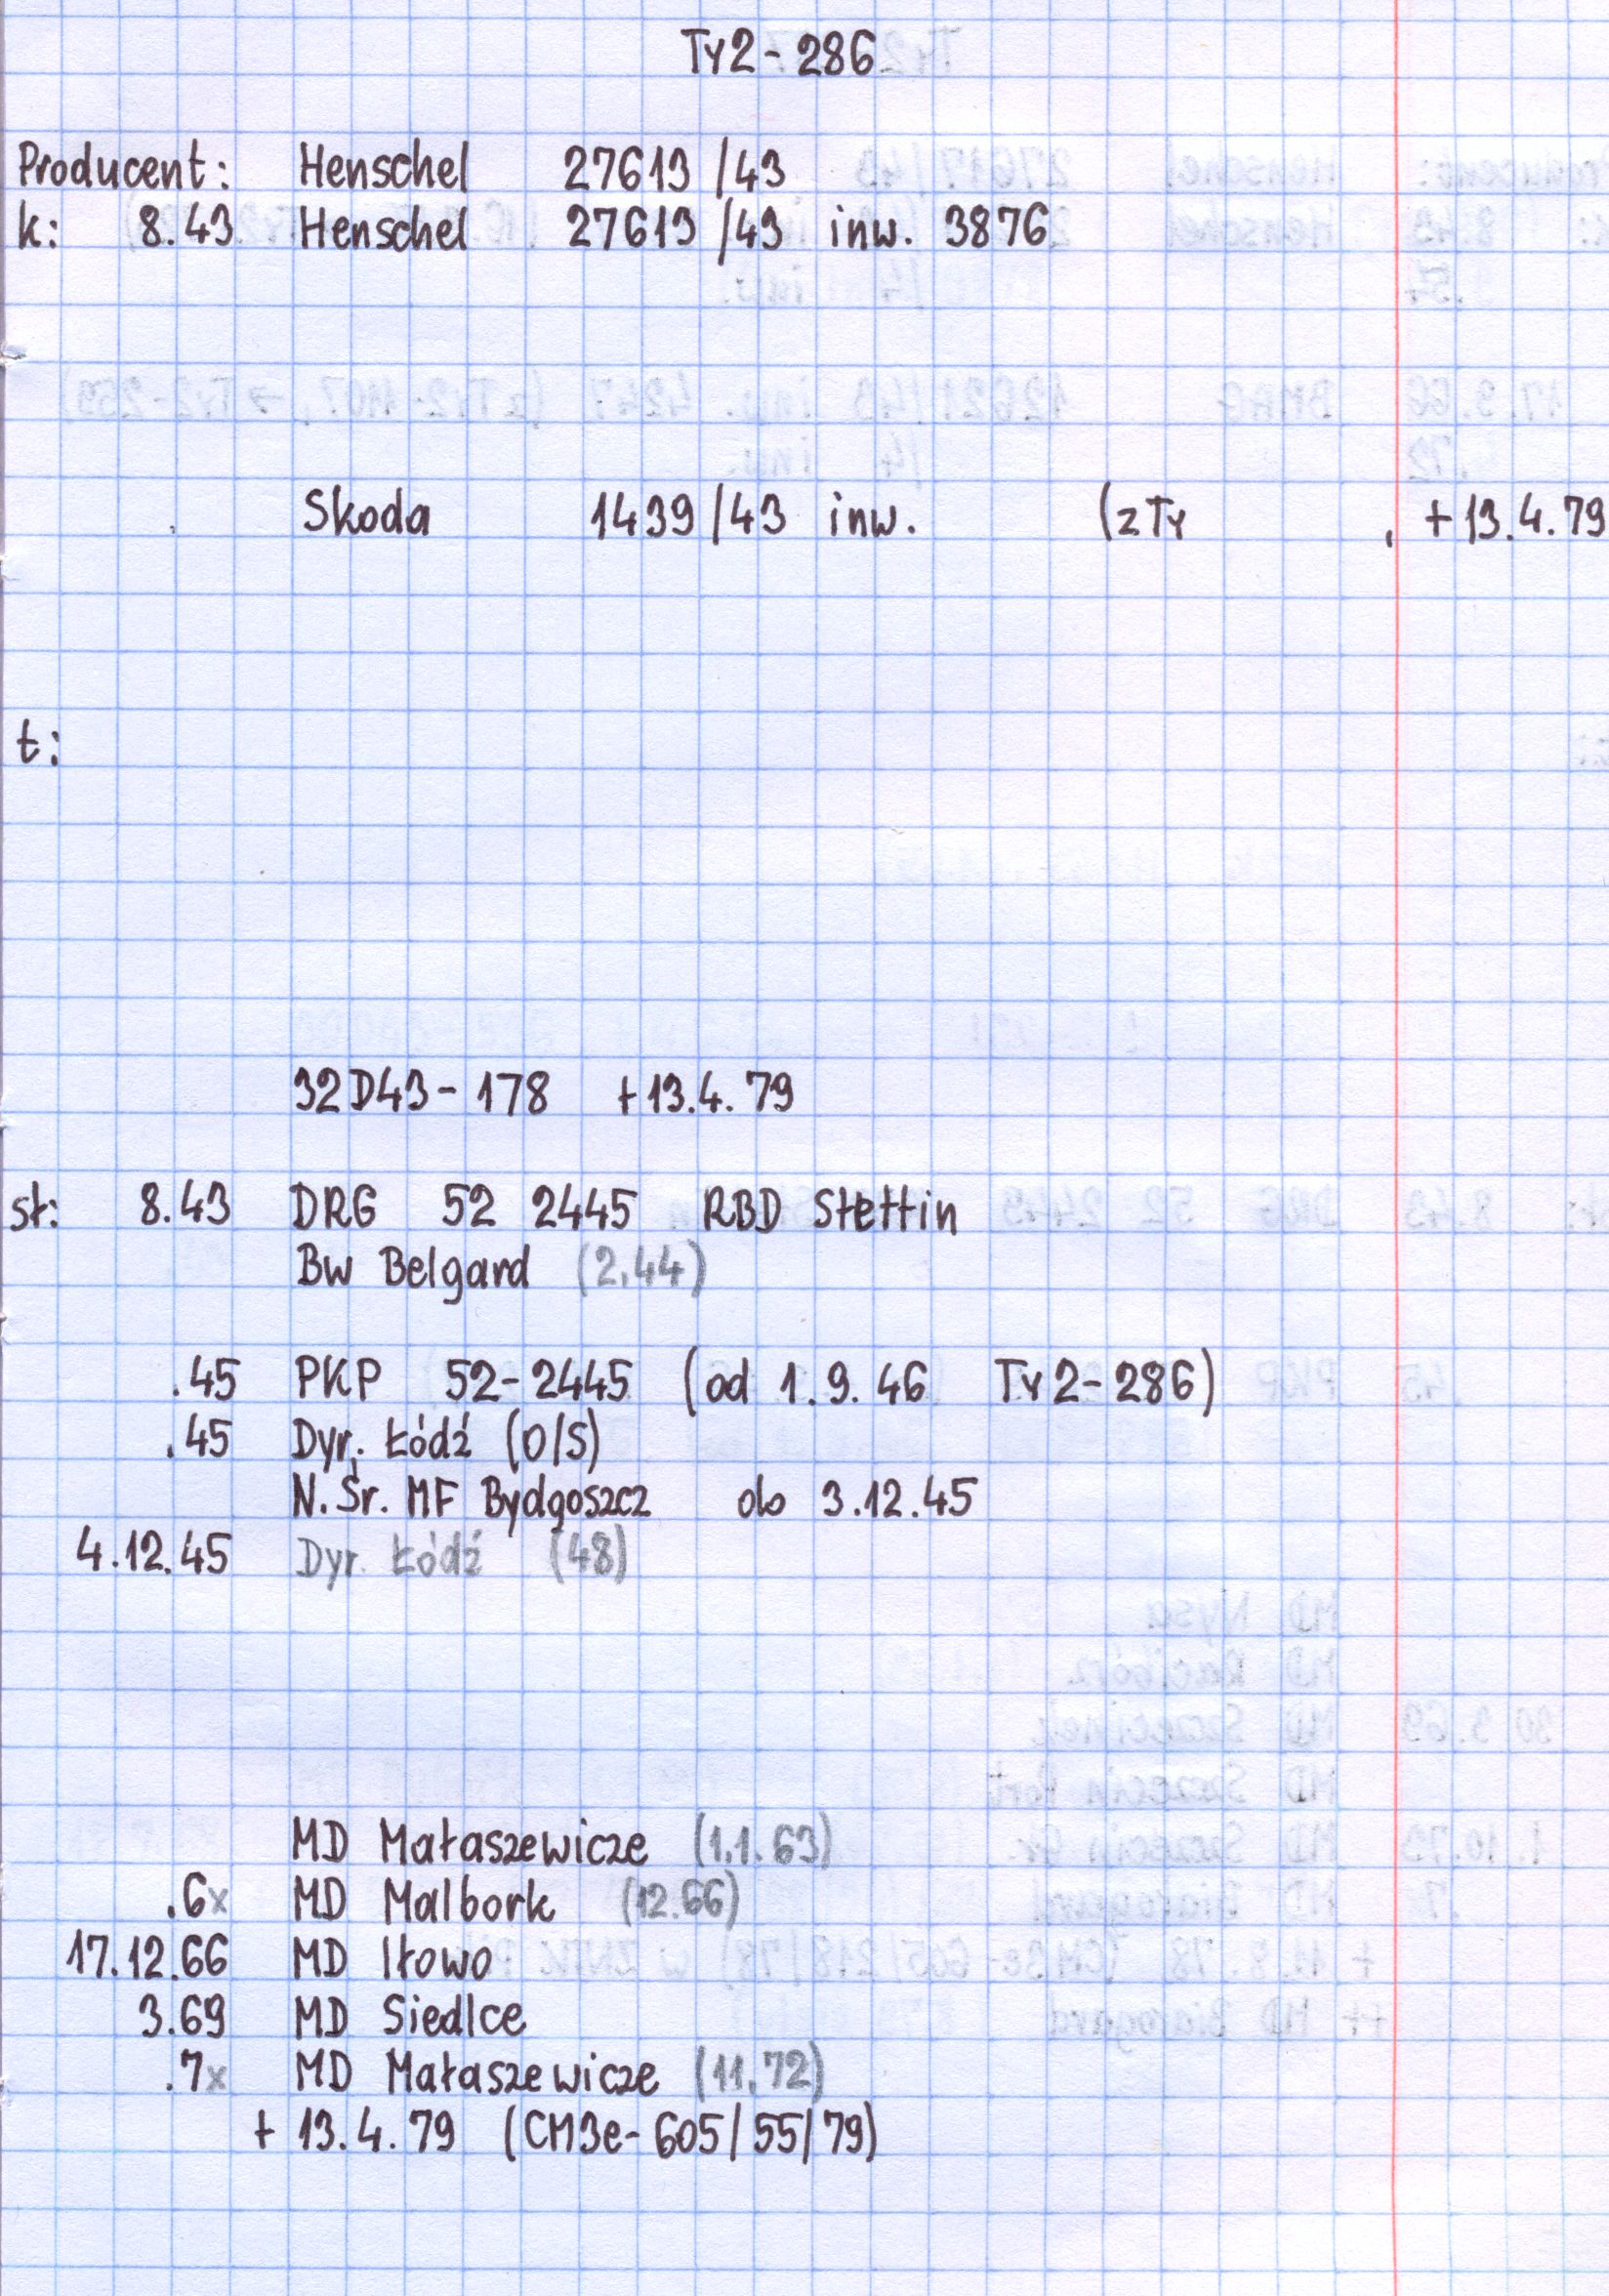 Ty2-286
Producent: Henschel 27613/43
k: 8.43 Henschel 27613/43 inw. 3876
Skoda 1439/43 inw. (z Ty , +13.4.79
t:
32D43-178 +13.4.79
st: 8.43 DRG 52 2445 RBD Stettin
Bw Belgard (2.44)
.45 PKP 52-2445 (od 1.9.46 Ty2-286)
.45 Dyr. Łódź (O/S)
N.Śr. MF Bydgoszcz do 3.12.45
4.12.45 Dyr. Łódź (48)
MD Małaszewicze (1.1.63)
.6x MD Malbork (12.66)
17.12.66 MD Iłowo
3.69 MD Siedlce
.7x MD Małaszewicze (11.72)
+ 13.4.79 (CM3e-605/55/79)